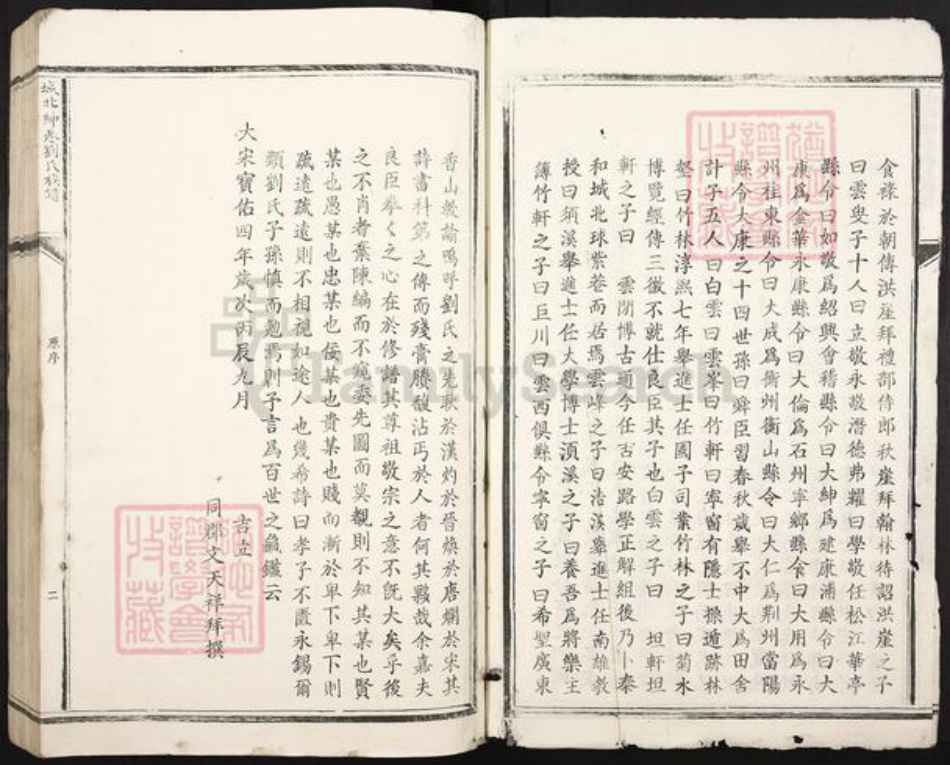 食祿於朝傳洪崖拜禮部侍郎秋崖拜翰林待詔洪崖之子
曰雲叟子十人曰立敬永敬潛德弗耀曰學敬任松江華亭
縣令曰如敬為紹興會稽縣令曰大紳為建康浦縣令曰大
康為金華永康縣令曰大倫為石州寧鄉縣令曰大用為永
州桂東縣令曰大成為衡州衡山縣令曰大仁為荆州當陽
縣令大康之十四世孫曰舜臣習春秋歲舉不中大為田舍
計子五人曰白雲曰雲峯曰竹軒曰寧窗有隱士操遁跡林
壑曰竹林淳熙七年舉進士任國子司業竹林之子曰菊水
博覽經傳三徵不就仕良臣其子也白雲之子曰 坦軒坦
軒之子曰 雲閒博古通今任吉安路學正解組後乃卜泰
和城北球紫巷而居焉雲峰之子曰浩溪舉進士任南雄教
授曰須溪舉進士任大學博士湏溪之子曰養吾為將樂主
簿竹軒之子曰巨川曰雲西俱縣令寧窗之子曰希聖廣東
香山教諭嗚呼劉氏之先耿於漢灼於晉煥於唐爛於宋其
詩書科第之傳而殘膏賸馥沾丐於人者何其夥哉余嘉夫
良臣拳く之心在於修譜其尊祖敬宗之意不旣大矣乎後
之不肖者棄陳編而不, 委先圖而莫覩則不知其某也賢
某也愚某也忠某也佞某也貴某也賤而漸於卑下卑下則
疏遠疏遠則不相視如途人 也幾希詩曰孝子不匱永錫爾
類劉氏子孫慎而勉焉則予言為百世之龜鑑云
吉立
大宋寶佑四年歲次丙辰九月
同郡文天祥拜撰
城北 劉氏族譜
原序
二
FamilySearch